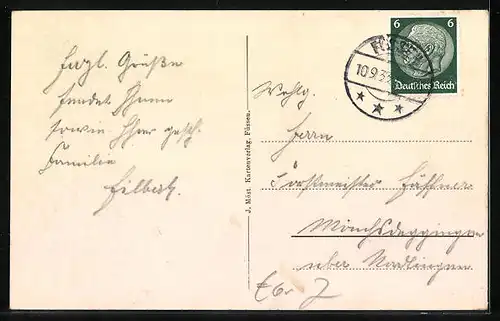 Herzl. Grüße
sendet Ihnen
sowie Ihrer gesch.
Familie
Hilbert.
J. Möst. Kartenverlag, Füssen.
FÜSSEN
10.9.3
6 6
Deutsches Reich
Wohlg.
Herrn
Forstmeister Häffner
Mönchsdeggingen
über Nördlingen